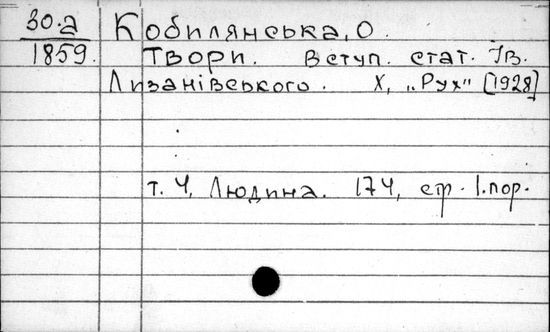 30.а Кобилянська, О.
1859. Твори. Вступ. стат. Ів.
Лизанівського. Х, „Рух" [1928]
т. 4, Людина. 174, стр. 1.пор.